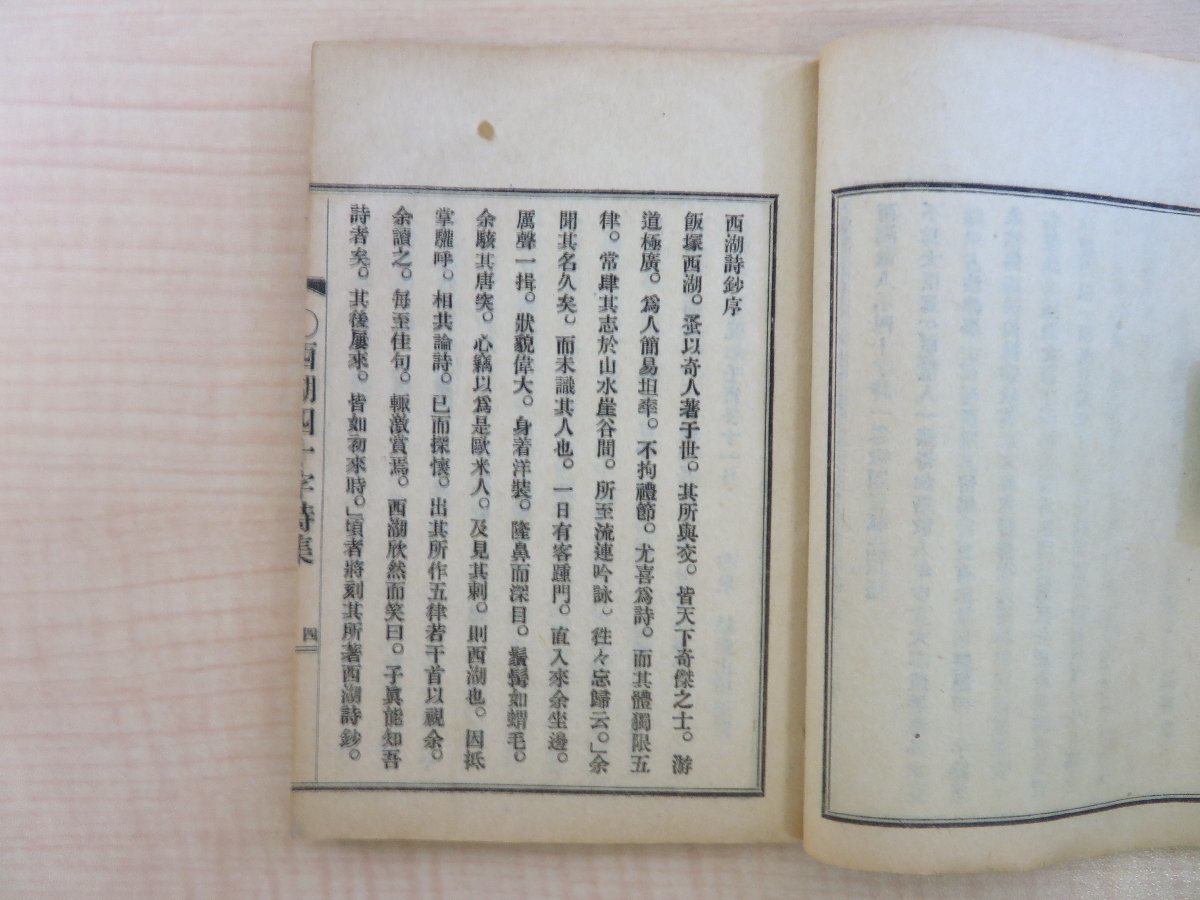 西湖詩鈔序
飯塚西湖。蚤以奇人著于世。其所與交。皆天下奇傑之士。游
道極廣。爲人簡易坦率。不拘禮節。尤喜爲詩。而其體獨限五
律。常肆其志於山水崖谷間。所至流連吟詠。往々忘歸云。」余
聞其名久矣。而未識其人也。一日有客踵門。直入來余坐邊。
厲聲一揖。狀貌偉大。身着洋裝。隆鼻而深目。鬚髯如蝟毛。
余駭其唐突。心竊以爲是歐米人。及見其刺。則西湖也。因抵
掌驩呼。相其論詩。已而探懷。出其所作五律若干首以視余。
余讀之。每至佳句。輒激賞焉。西湖欣然而笑曰。子眞能知吾
詩者矣。其後屢來。皆如初來時。」頃者將刻其所著西湖詩鈔。
〇西湖四十字詩集
四